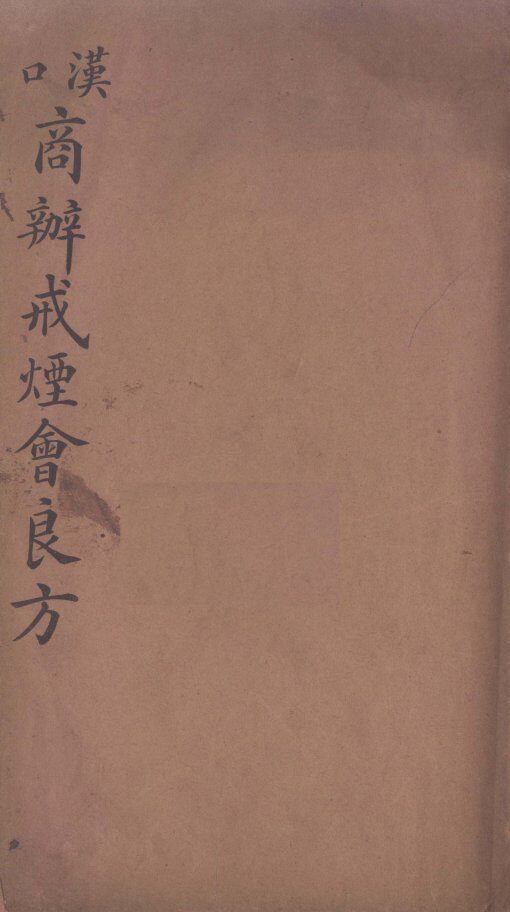 漢口
商辦戒煙會良方